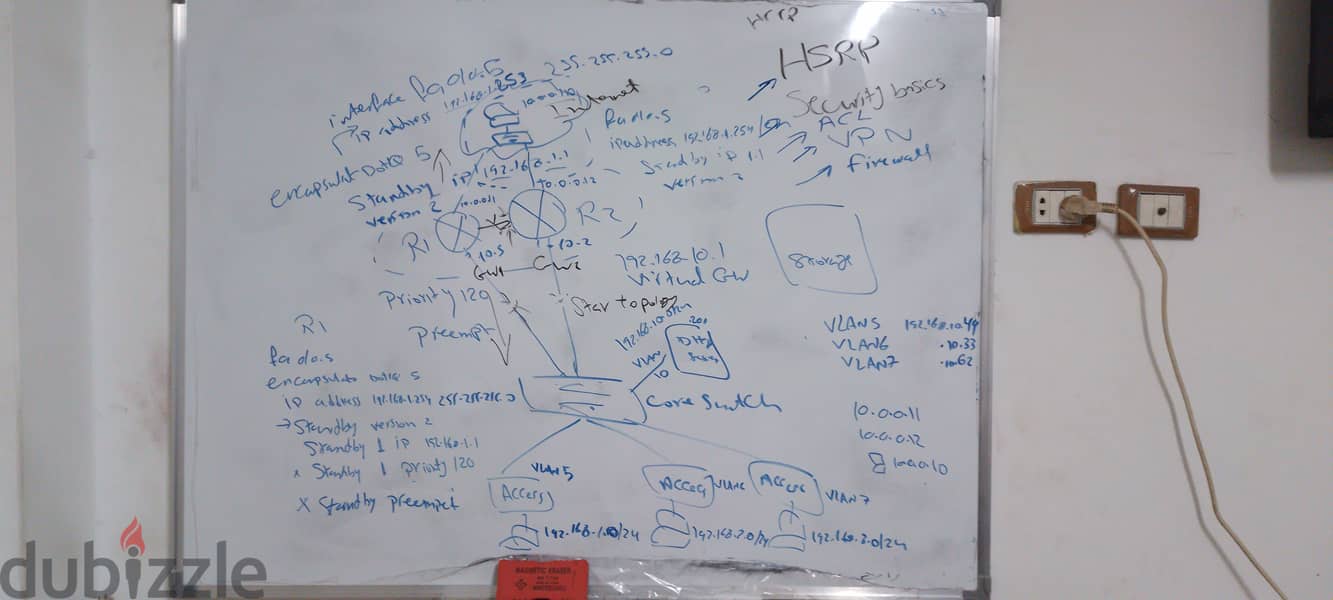 HSRP
Security basics
ACL
VPN
firewall
interface fa0/0.5
255.255.255.0
ip address
Internet
fa0/0.5
ip address 192.168.1.254
standby ip 1.1
version 2
encapsulat Dot1Q 5
standby ip 192.168.1.1
version 2
10.0.0.11
10.0.0.12
R1
R2
10.5
10.2
GW1
GW2
192.168.10.1
Virtual GW
Storage
priority 120
preempt
Star topology
192.168.10.0/24
.200
VLAN
10
Core Switch
VLAN5
VLAN6
VLAN7
192.168.10.44
.10.33
.10.62
10.0.0.11
10.0.0.12
10.0.0.10
R1
fa0/0.5
ip address 192.168.1.254 255.255.255.0
Standby version 2
Standby 1 ip 192.168.1.1
x Standby 1 priority 120
x Standby preempt
VLAN5
Access
Access
Access
VLAN7
192.168.1.0/24
192.168.2.0/24
192.168.3.0/24
MAGNETIC ERASER
dubizzle